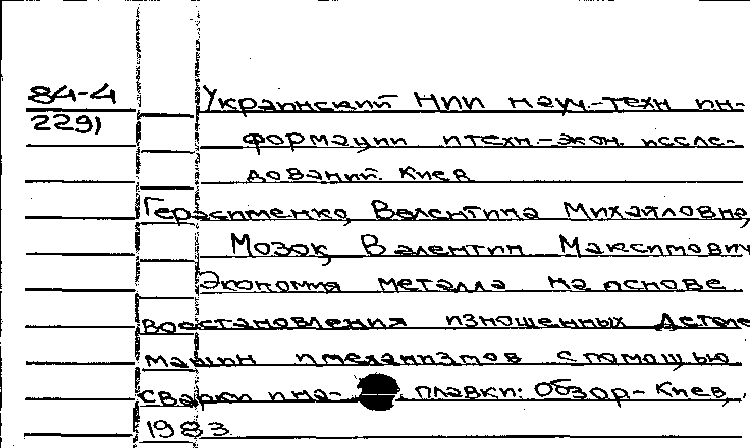 84-4
2291
Украинский НИИ науч.-техн ин-
формации и техн-экон. иссле-
дований. Киев
Герасименко, Валентина Михайловна,
Мозок, Валентин Максимович
Экономия металла на основе
восстановления изношенных детале
машин и механизмов с помощью
сварки и на- плавки: Обзор-Киев,
1983